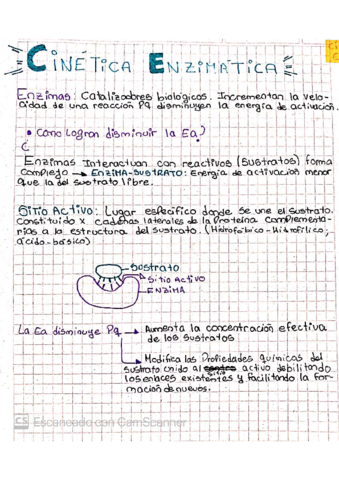 CINÉTICA ENZIMÁTICA
Enzimas: Catalizadores biológicos. Incrementan la velo-
cidad de una reacción Pq disminuyen la energía de activación.
• Como Logran disminuir la Ea?
¿
Enzimas Interactuan con reactivos (sustratos) forma
complejo → ENZIMA-SUSTRATO: Energía de activación menor
que la del sustrato libre.
Sitio Activo: Lugar específico donde se une el sustrato.
constituido x cadenas laterales de la Proteína complementa-
rias a la estructura del sustrato. (Hidrofóbico-Hidrofílico;
ácido-básico)
Sustrato
Sitio Activo
ENZIMA
La Ea disminuye Pq → Aumenta la concentración efectiva
de los sustratos
→ Modifica las Propiedades químicas del
sustrato unido al sitio activo debilitando
los enlaces existentes y facilitando la for-
mación de nuevos.
CS Escaneado con CamScanner